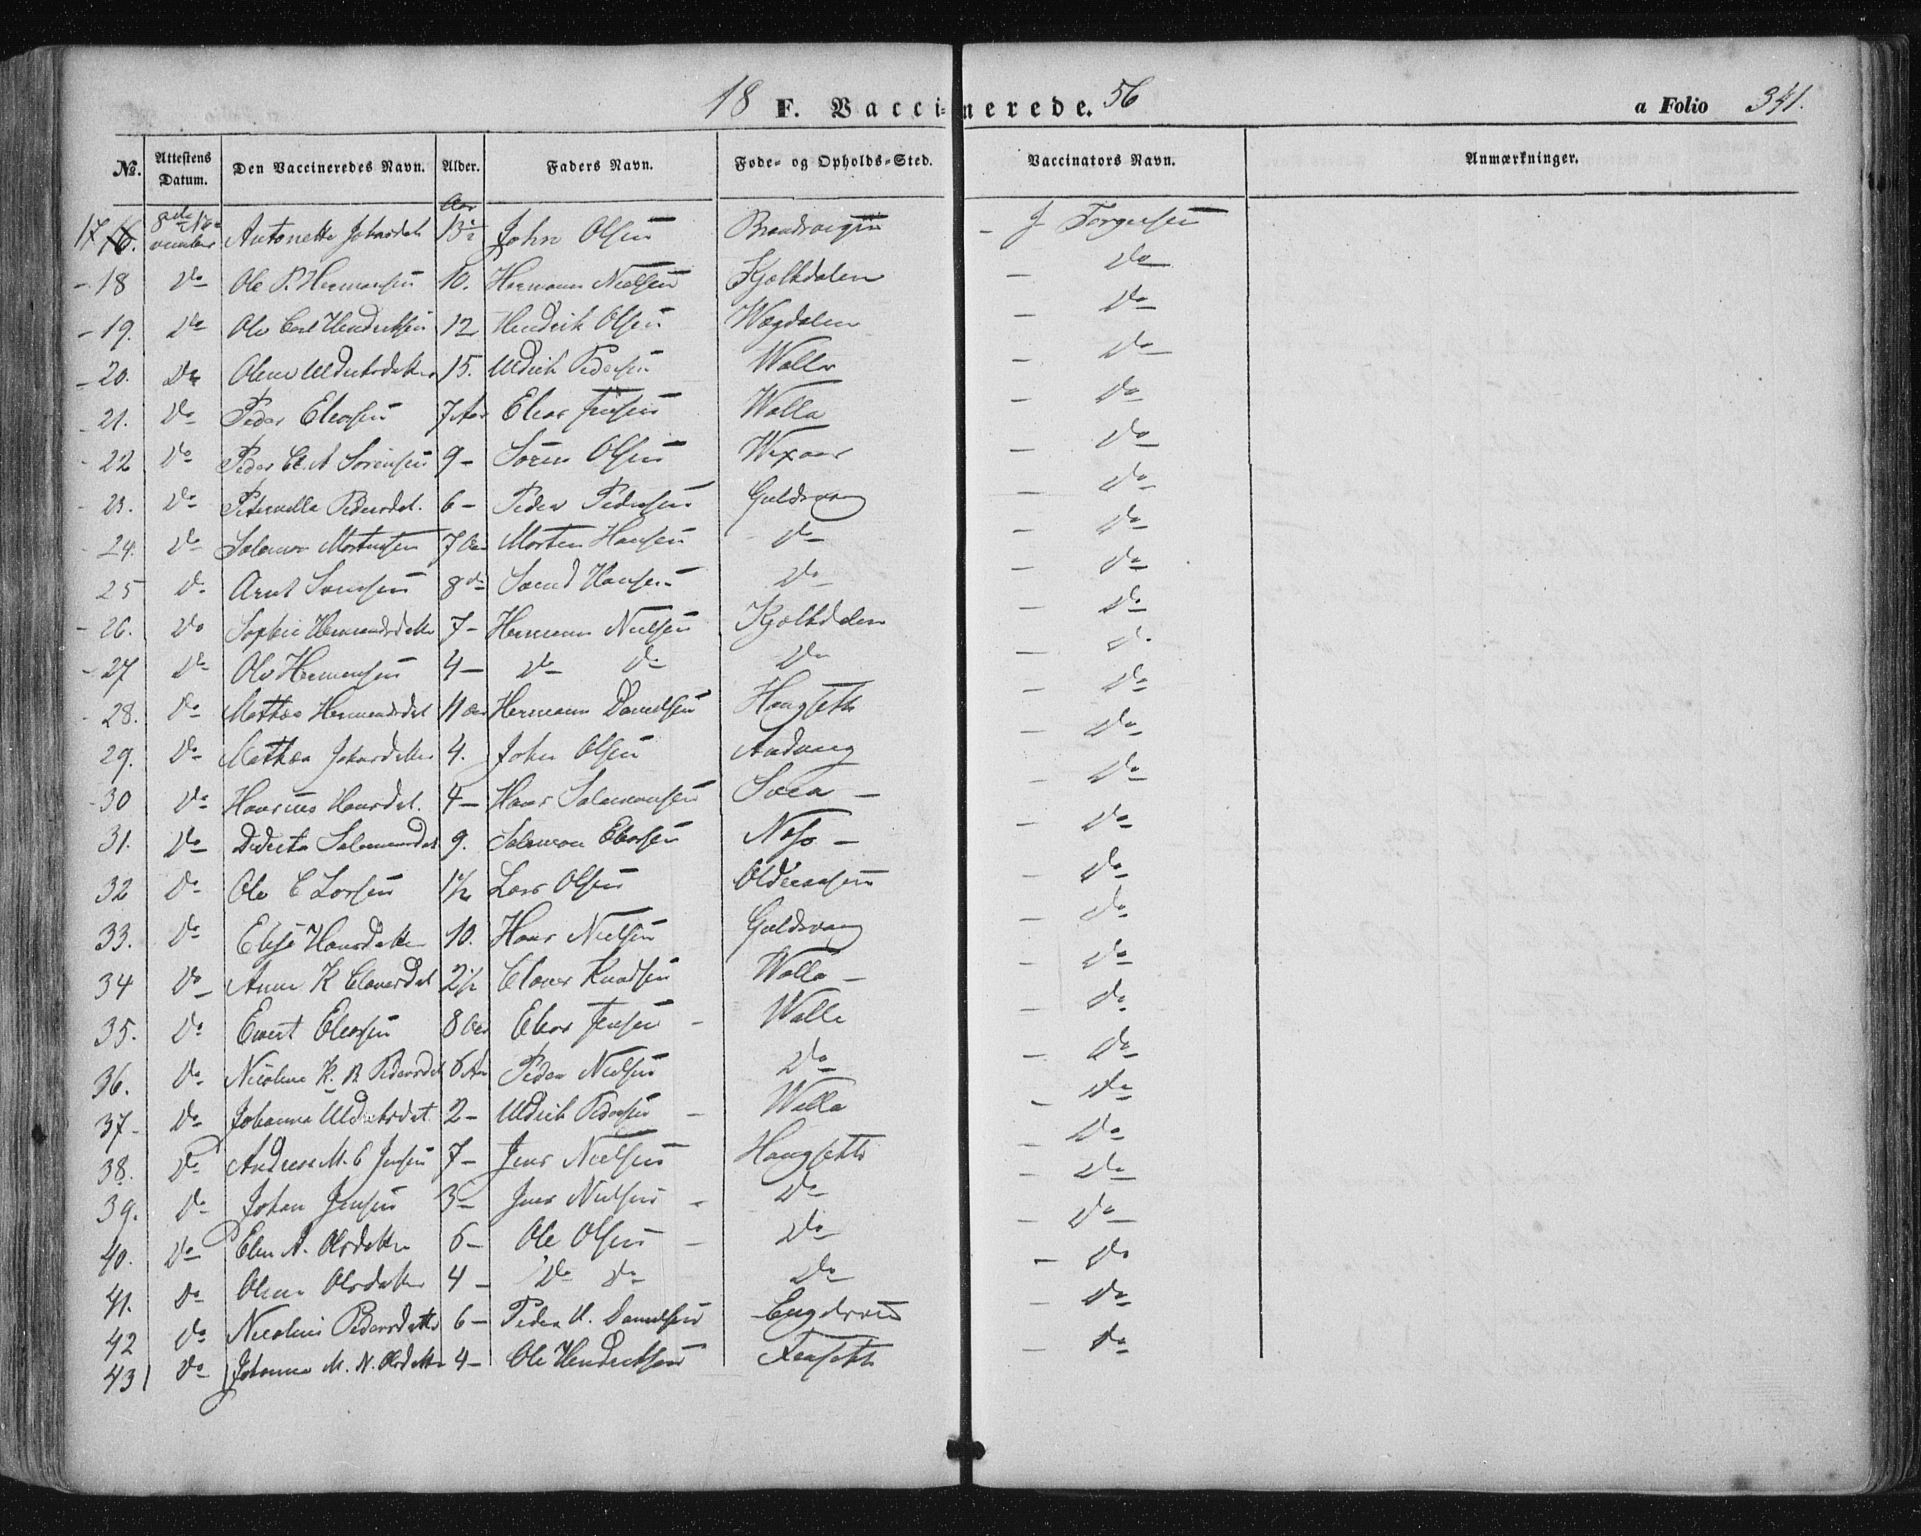 18 F. Vaccinerede. 56 a Folio 341.
No. Attestens Datum. Den Vaccineredes Navn. Alder. Faders Navn. Føde- og Opholds-Sted. Vaccinators Navn. Anmærkninger.
17 8de November Antonette Johnsdatt Aar 13½ John Olsen - J Torgersen
- 18 Do Ole P. Hermansen 10. Hermann Nielsen Kjølkdalen - Do
- 19. Do Ole Carl Hendriksen 12 Hendrik Olsen Wegdalen - Do
- 20. Do Olene Uldriksdatter 15. Uldrik Pedersen Walla - Do
- 21. Do Peder Eliassen 7 Aar Elias Jensen Walla - Do
- 22 Do Peder Sørensen 9 - Søren Olsen - Do
- 23. Do Peternella Pedersdat. 6 - Peder Pedersen Guldsvaag - Do
- 24. Do Salamon Mortensen 7 Aar Morten Hansen - Do - Do
25 Do Arnt 8 Do Hansen Do - Do
- 26. Do Sophie Hermandsdatter 7 - Hermann Nielsen Kjølkdalen - Do
- 27 Do Ole Hermansen 4 - Do Do Do - Do
- 28. Do Mathea Hermandsdat 11 Aar Hermann Danielsen Haugsetth - Do
29. Do Mathea Johnsdatter 4. John Olsen - Do
- 30 Do Hansdat. 4 - Hans Salamonsen - - Do
31. Do Salamonsdat 9. Salamon Eliassen - - Do
32 Do Ole C Larsen 1½ Lars Olsen - Do
33. Do Hansdatter 10. Hans Nielsen Guldsvaag - Do
34 Do Anne K Claversdat 2½ Claver Knudsen Walla - - Do
35. Do Evert Eliassen 8 Aar Elias Jensen - Walla - Do
36. Do Nicoline K. B Pedersdat 6 Aar Peder Nielsen Do - Do
37 - Do Johanna Uldriksdat 2 - Uldrik Pedersen - Walla - Do
38. Do Andreas M. C Jensen 7 - Jens Nielsen Haugsetth - Do
39. Do Johan Jensen 3 - Jens Nielsen - Do - Do
40. Do Elen A. Olsdatter 6 - Ole Olsen - Do - Do
41. Do Olene Olsdatter 4 - Do Do Do - Do
42 Do Nicoline Pedersdatter 6 - Peder A. Danielsen - Do
43 Do Johanna M. N. Olsdatter 4 - Ole Hendriksen - Do